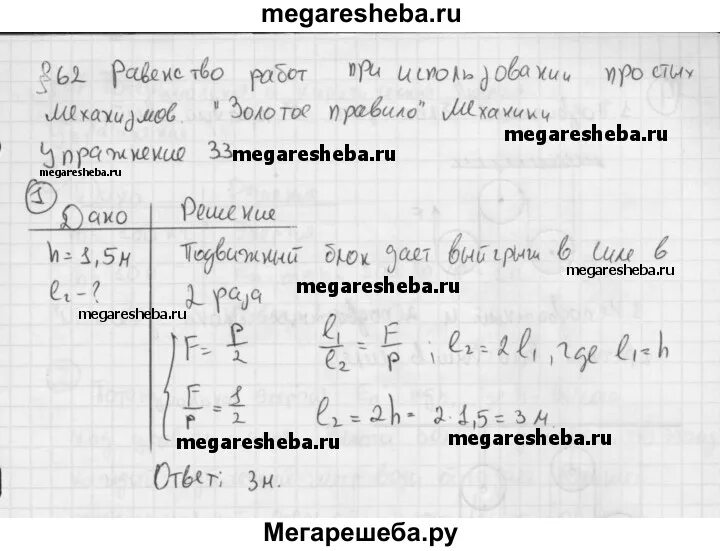 megaresheba.ru
§62 Равенство работ при использовании простых
механизмов. "Золотое правило" механики
megaresheba.ru
упражнение 33
megaresheba.ru
megaresheba.ru
1
Дано Решение
h = 1,5 м Подвижный блок дает выйгрыш в силе в
megaresheba.ru
l₂ - ? 2 раза
megaresheba.ru
megaresheba.ru
F = P/2 l₁/l₂ = F/P ; l₂ = 2l₁, где l₁ = h
F/P = 1/2 l₂ = 2h = 2·1,5 = 3 м.
megaresheba.ru
megaresheba.ru
Ответ: 3м.
Мегарешеба.ру